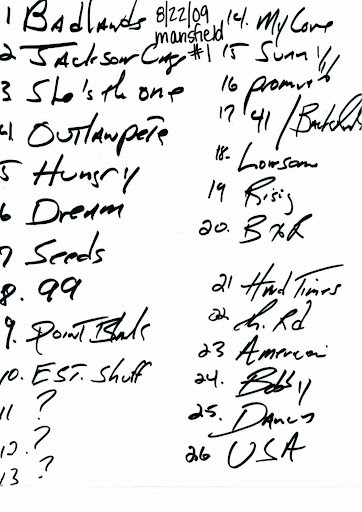 8/22/09
mansfield #1
1 Badlands
2 Jackson Cage
3 She's the one
4 Outlaw Pete
5 Hungry
6 Dream
7 Seeds
8. 99
9. Point Blank
10. E ST. Shuff
11 ?
12. ?
13 ?
14. My Love
15 Sunny
16 promise
17 41 /
18. Lonesom
19 Risig
20. BxR
21 Hard Times
22 Th. Rd
23 American
24. Bobby
25. Dancing
26 USA